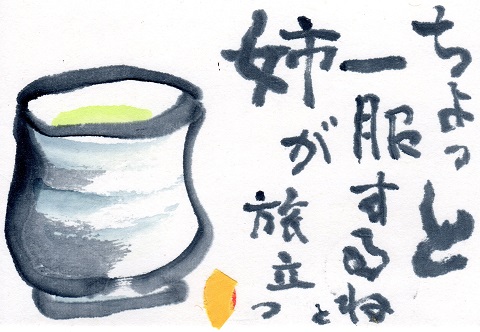 ちょっと
一服するねと
姉が
旅立つ